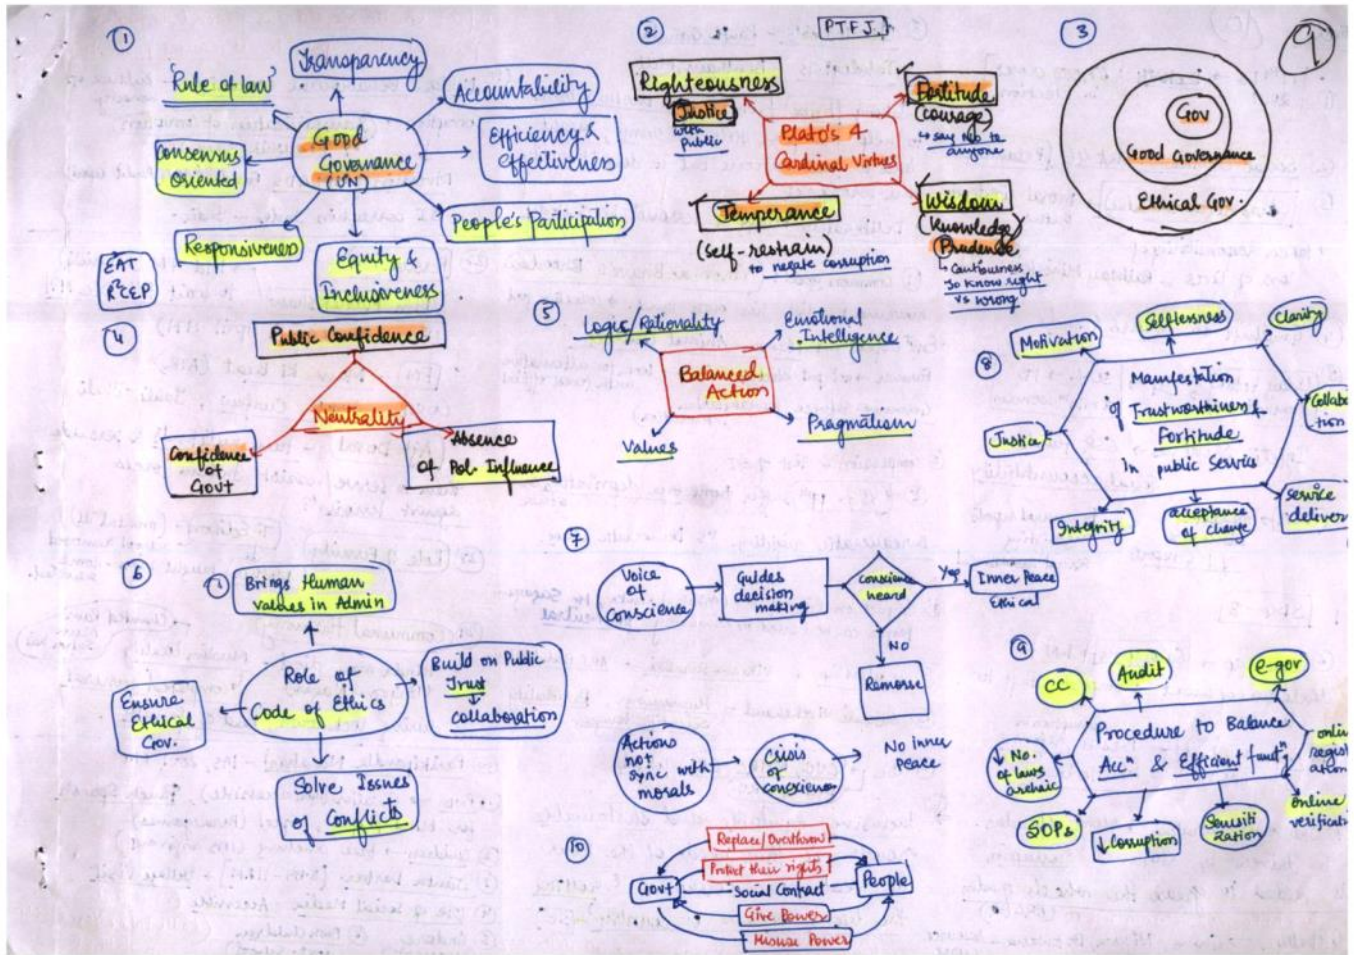 9
①
Transparency
'Rule of law'
Accountability
Good
Governance
(UN)
Efficiency &
effectiveness
Consensus
Oriented
People's Participation
Responsiveness
Equity &
Inclusiveness
EAT
R²CEP
②
PTFJ
Righteousness
Justice
with
Public
Fortitude
(courage)
↳ say no to
anyone
Plato's 4
Cardinal Virtues
Temperance
(self-restrain)
to negate corruption
Wisdom
Knowledge
Prudence
↳ Cautiousness
to know right
vs wrong
③
Gov
Good Governance
Ethical Gov.
④
Public Confidence
Neutrality
Confidence
of
Govt
Absence
of Pol. Influence
⑤
Logic/Rationality
Emotional
Intelligence
Balanced
Action
Values
Pragmatism
⑧
Motivation
Selflessness
Clarity
Manifestation
of Trustworthiness &
Fortitude
In public Service
Collabo
tion
Justice
Integrity
acceptance
of change
service
deliver
⑥
Brings Human
values in Admin
Role of
Code of Ethics
Build on Public
Trust
↓
collaboration
Ensure
Ethical
Gov.
Solve Issues
of Conflicts
⑦
Voice
of
Conscience
Guides
decision
making
conscience
heard
Yes
Inner Peace
Ethical
NO
Remorse
Actions
not
sync with
morals
Crisis
of
conscience
No inner
peace
⑨
CC
Audit
e-gov
Procedure to Balance
Accⁿ & Efficient functⁿg
↓ No.
of laws
archaic
SOPs
↓ Corruption
Sensiti
zation
online
verificati
⑩
Replace/Overthrow
Protect their rights
Govt
Social Contract
People
Give Power
Misuse Power